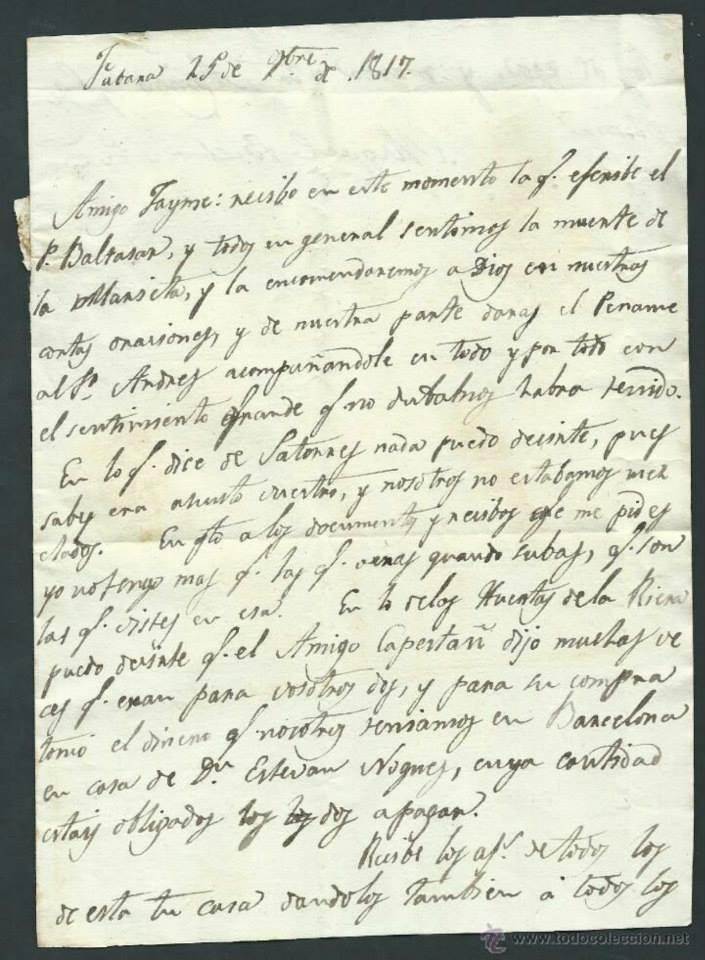 Tubana 25 de 9bre. de 1817.
Amigo Jayme: recibo en este momento la q.e escribe el
P. Baltasar, y todos en general sentimos la muerte de
la Marieta, y la encomendaremos a Dios en nuestras
cortas oraciones, y de nuestra parte daras el Pesame
al Sr. Andres acompañandole en todo y por todo con
el sentimiento grande q.e no dudamos habra tenido.
En lo q.e dice de Satorres nada puedo decirte, pues
sabes era asunto vuestro, y nosotros no estabamos mez
clados. En qto a los documentos y recibos que me pides
yo no tengo mas q.e las q.e veras quando subas, q.e son
las q.e vistes en esa. En lo de los Huertas de la Riera
puedo decirte q.e el Amigo Capertañ dijo muchas ve
ces q.e eran para vosotros dos, y para su compra
tomó el dinero q.e nosotros teniamos en Barcelona
en casa de Dn Estevan Nogues, cuya cantidad
estais obligados los dos a pagar.
Recibe los afs. de todos los
de esta tu casa dandolos tambien á todos los
www.todocoleccion.net